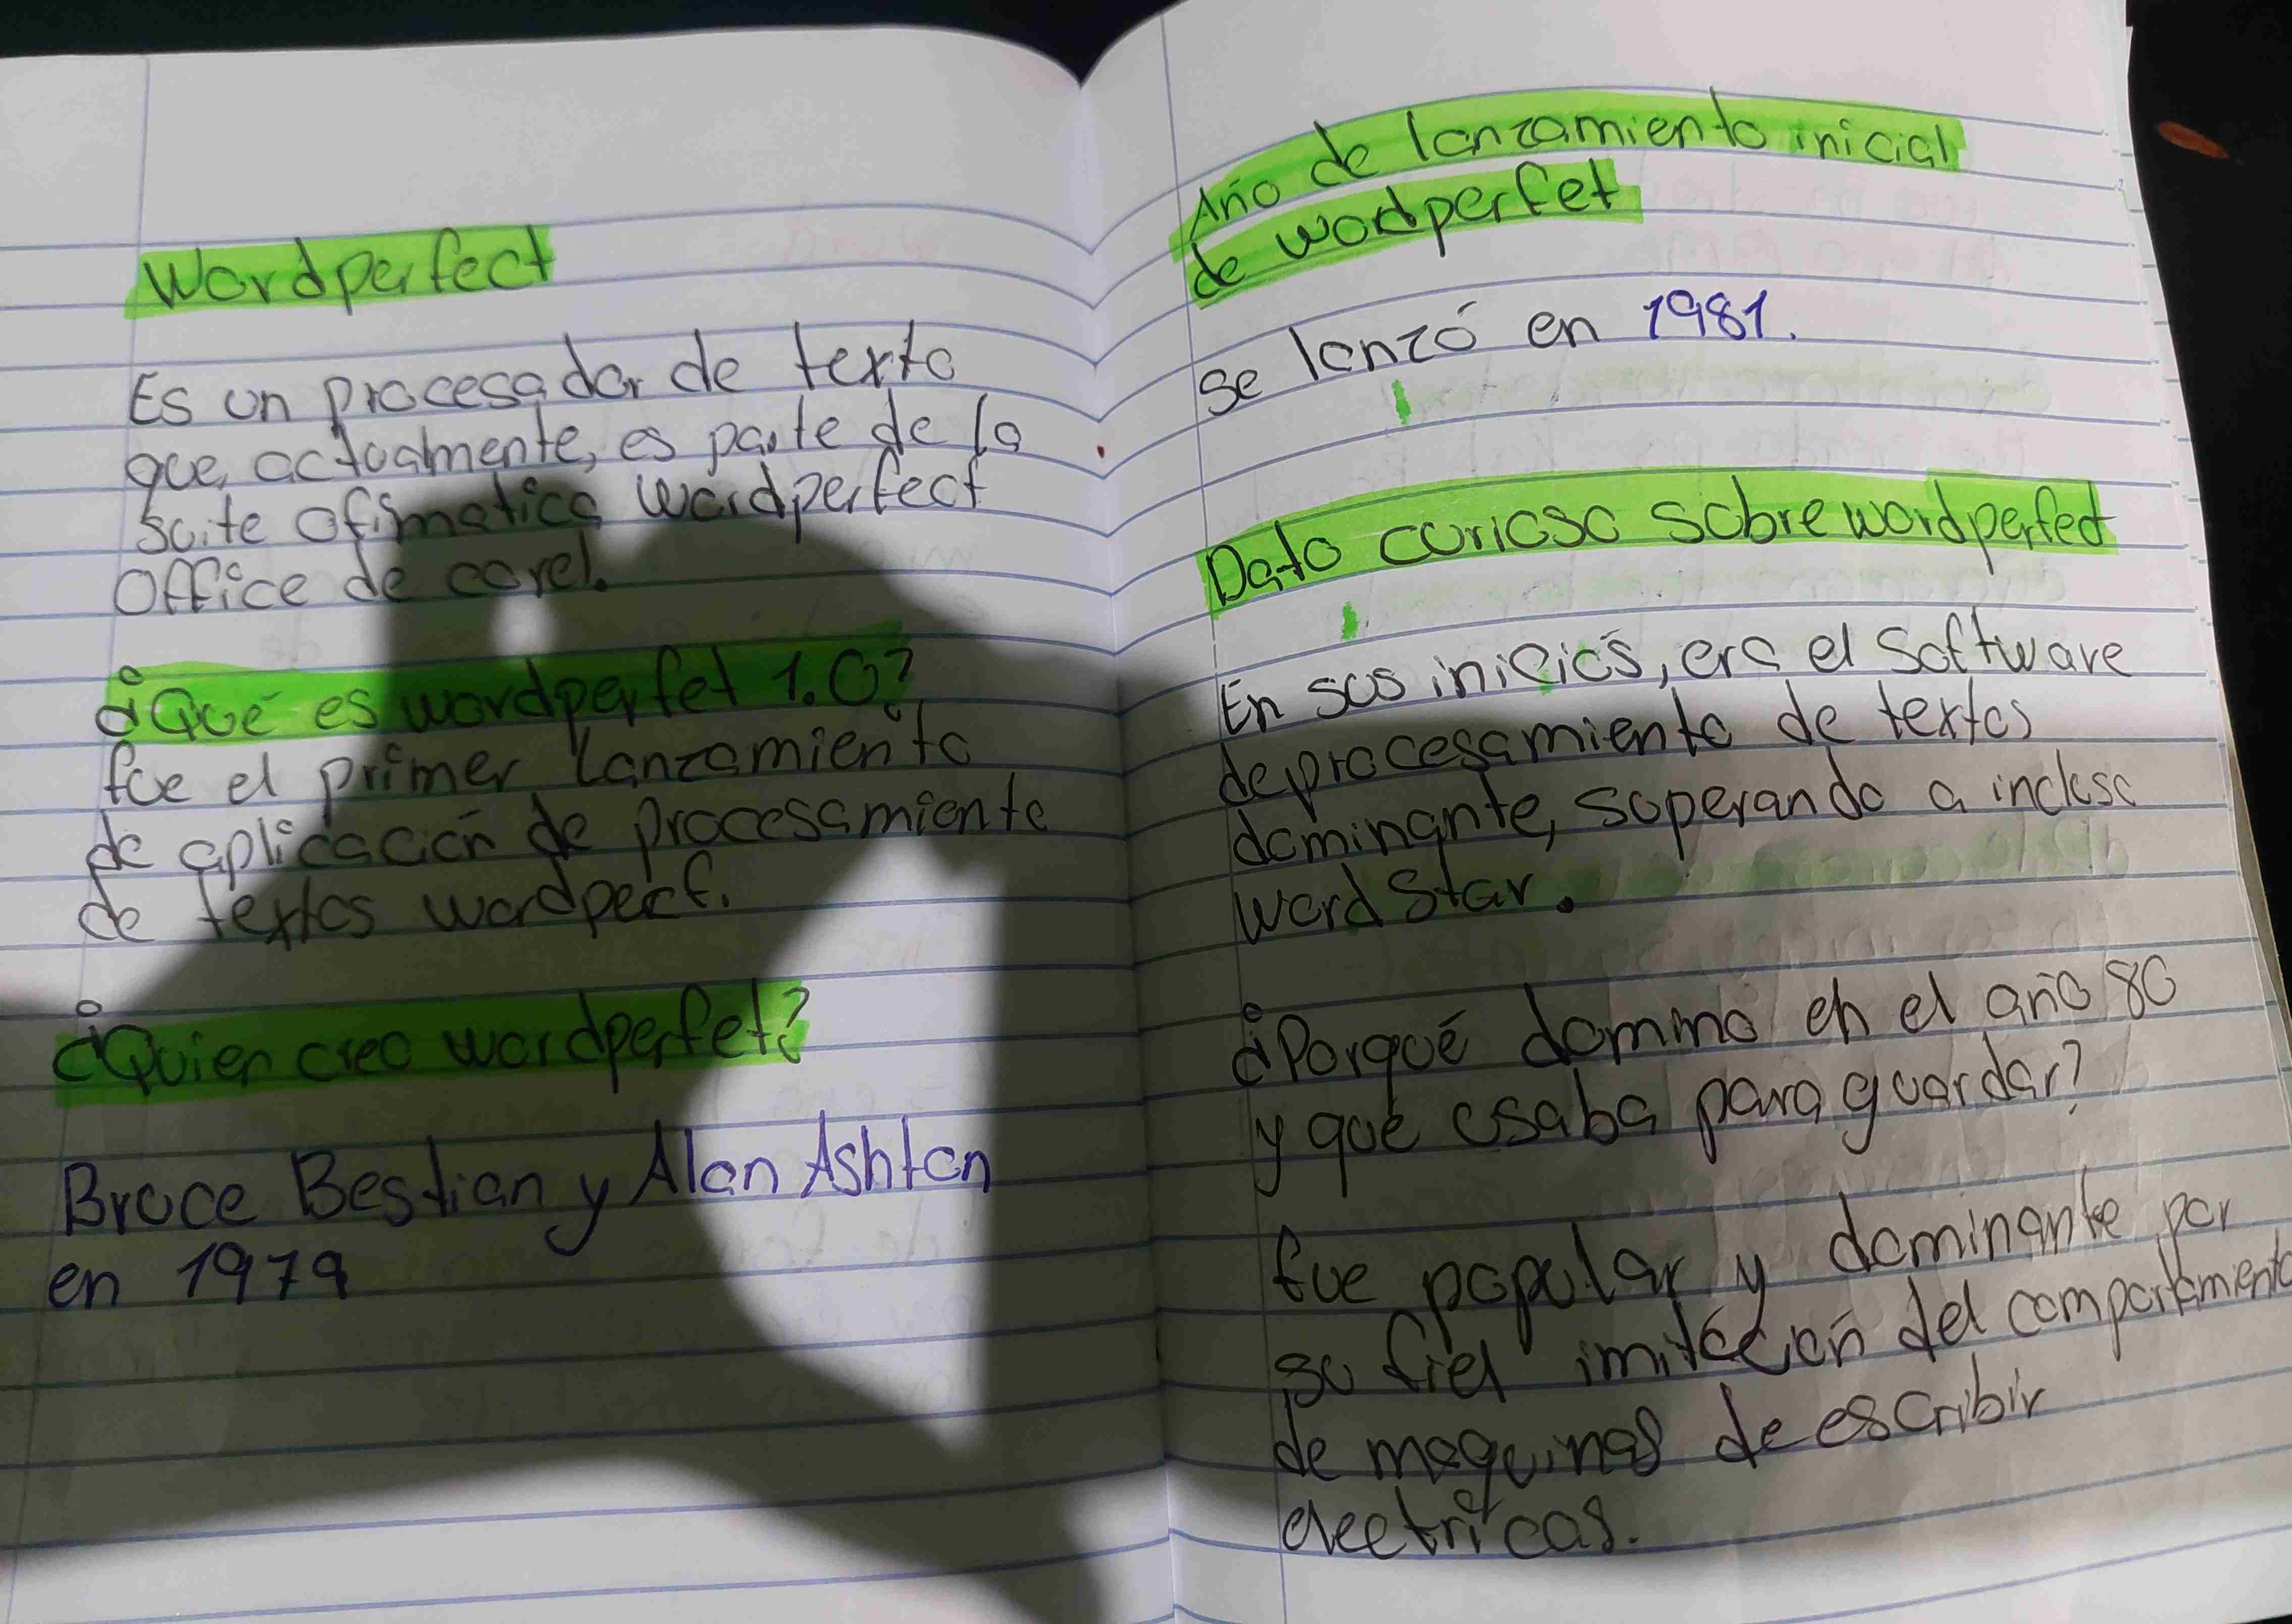 Wordperfect
Es un procesador de texto
que, actualmente, es parte de la
suite Ofimatica Wordperfect
Office de corel.
¿Qué es wordperfet 1.0?
fue el primer lanzamiento
de aplicación de procesamiento
de textos wordperf.
¿Quien creo wordperfet?
Bruce Bestian y Alan Ashton
en 1979
Año de lanzamiento inicial
de wordperfet
se lanzó en 1981.
Dato curioso sobre wordperfect
En sus inicios, era el Software
de procesamiento de textos
dominante, superando a incluso
word Star.
¿Porqué domino en el año 80
y qué usaba para guardar?
fue popular y dominante por
su fiel imitación del comportamiento
de maquinas de escribir
electricas.